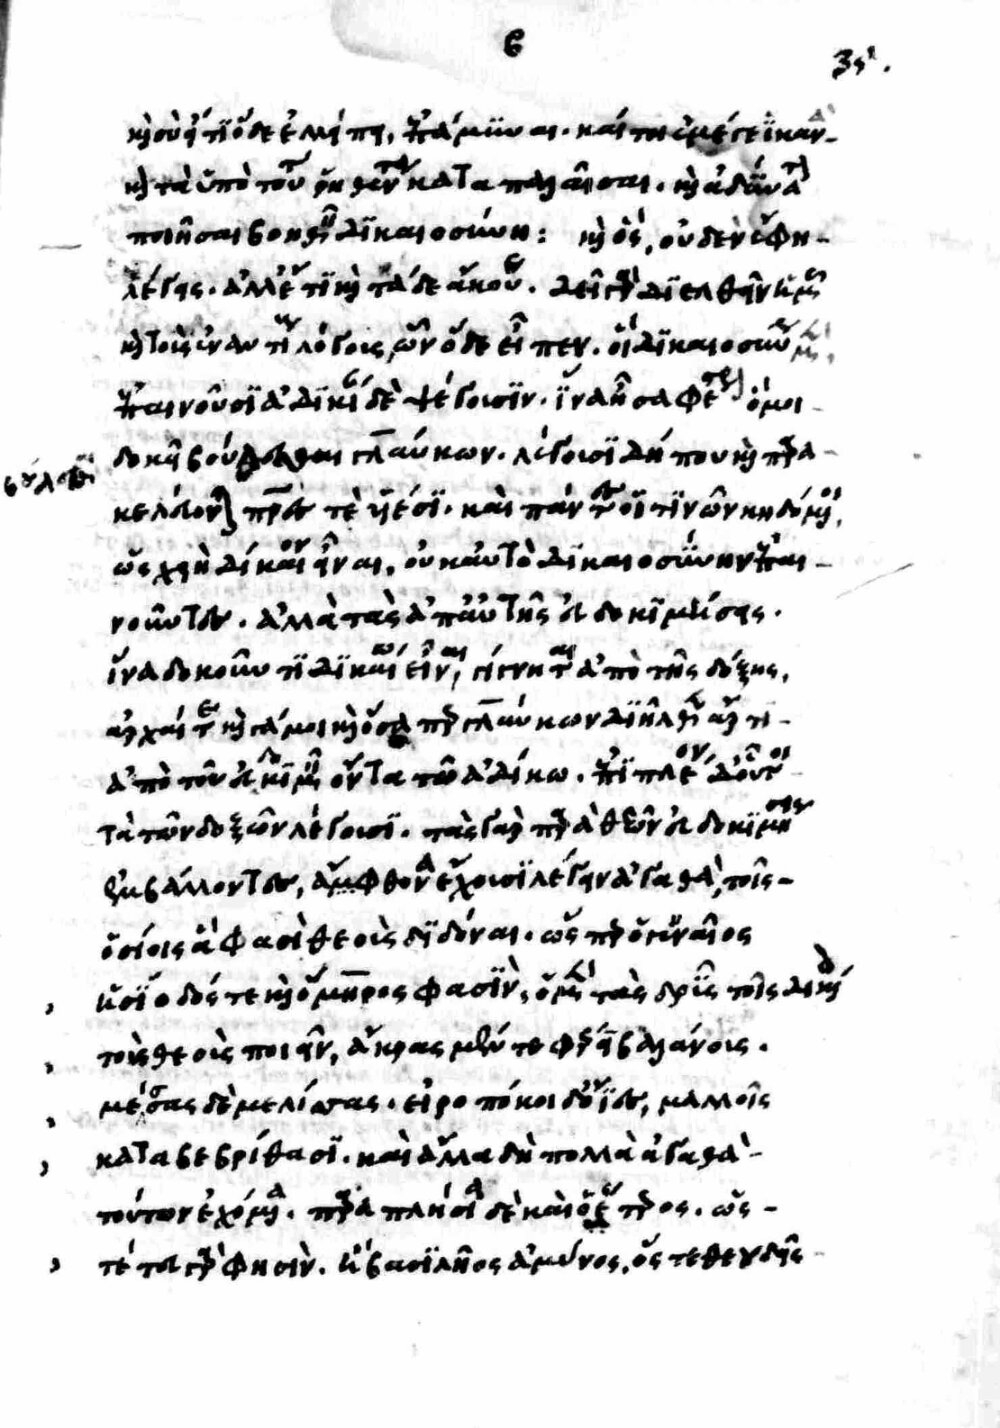 β
37.
καὶ σὺ εἴ τι ὅδε ἐλλείπει, ἐπάμυναι. καίτοι ἐμέ γε ἱκανὰ
καὶ τὰ ὑπὸ τούτου ῥηθέντα καταπαλαῖσαι. καὶ ἀδύνατον
ποιῆσαι βοηθεῖν δικαιοσύνη: καὶ ὅς, οὐδὲν ἔφη
λέγεις. ἀλλ' ἔτι καὶ τάδε ἄκουε. δεῖ γὰρ διελθεῖν ἡμᾶς
καὶ τοὺς ἐναντίους λόγους, ὧν ὅδε εἶπεν. οἳ δικαιοσύνην μὲν
ἐπαινοῦσιν ἀδικίαν δὲ ψέγουσιν. ἵν' ᾖ σαφέστερον ὅ μοι
δοκεῖ βούλεσθαι γλαύκων. λέγουσι δή που καὶ παρα
βούλεσθαι
κελεύονται πατέρες τε υἱέσι. καὶ πάντες οἵ τινῶν κηδόμενοι,
ὡς χρὴ δίκαιον εἶναι, οὐκ αὐτὸ δικαιοσύνην ἐπαι
νοῦντες. ἀλλὰ τὰς ἀπ' αὐτῆς εὐδοκιμήσεις.
ἵνα δοκοῦντι δικαίῳ εἶναι, γίγνηται ἀπὸ τῆς δόξης,
ἀρχαί τε καὶ γάμοι καὶ ὅσα περ γλαύκων διῆλθεν ἄρτι
ἀπὸ τοῦ εὐδοκιμεῖν ὄντα τῷ ἀδίκῳ. ἐπὶ πλέον δ' οὗτοι
τὰ τῶν δοξῶν λέγουσι. τὰς γὰρ παρὰ θεῶν εὐδοκιμήσεις
ἐμβάλλοντες, ἄφθονα ἔχουσι λέγειν ἀγαθὰ, τοῖς
ὁσίοις ἅ φασὶ θεοὺς διδόναι. ὥσπερ ὁ γενναῖος
ἡσίοδός τε καὶ ὅμηρος φασὶν, ὁ μὲν τὰς δρῦς τοῖς δικαίοις
τοὺς θεοὺς ποιεῖν, ἄκρας μέν τε φέρειν βαλάνους.
μέσσας δὲ μελίσσας. εἰροπόκοι δ' ὄϊες, μαλλοῖς
καταβεβρίθασι. καὶ ἄλλα δὴ πολλὰ ἀγαθὰ
τούτων ἐχόμενα. παραπλήσια δὲ καὶ ὁ ἕτερος. ὥς
τέ τευ γὰρ φησιν. ἢ βασιλῆος ἀμύμονος, ὅς τε θεουδής